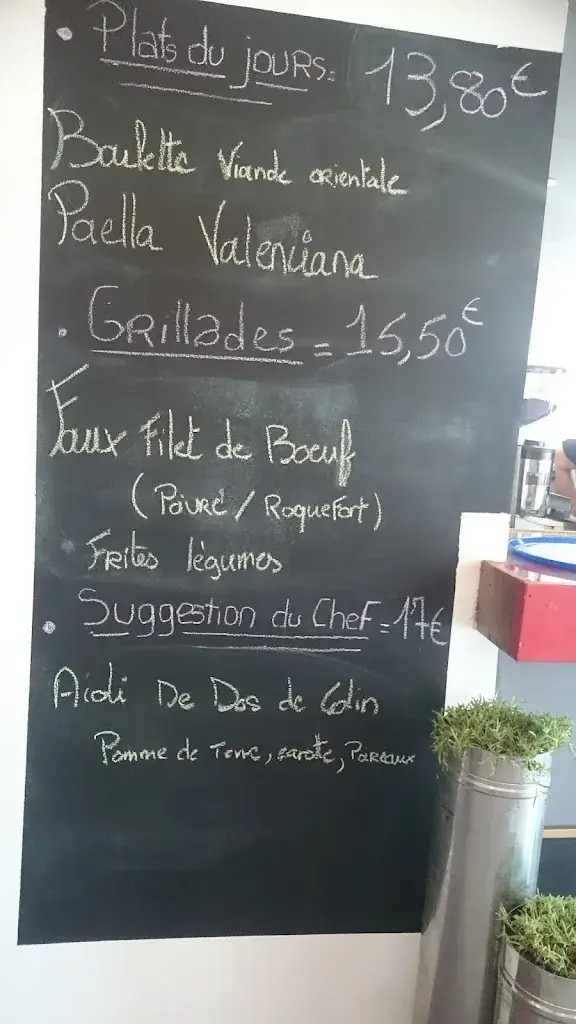 • Plats du jours = 13,80€
Boulette Viande orientale
Paella Valenciana
• Grillades = 15,50€
Faux Filet de Boeuf
(Poivre / Roquefort)
Frites légumes
• Suggestion du Chef = 17€
Aïoli De Dos de Colin
Pomme de Terre, carotte, Poireaux